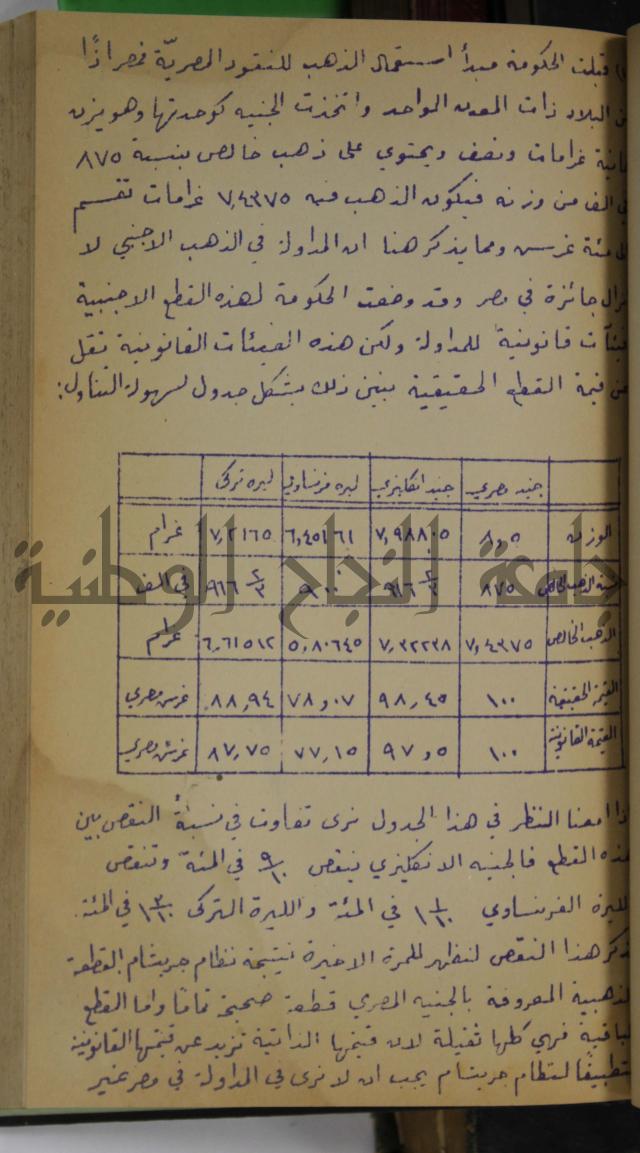 قبلت الحكومة مبدأ استعمال الذهب للنقود المصريّة فمصر اذًا
البلاد ذات المعدن الواحد واتخذت الجنيه كوحدتها وهو يزن
غرامات ونصف ويحتوي على ذهب خالص بنسبة ٨٧٥
الف من وزنه فيكون الذهب فيه ٧,٤٣٧٥ غرامات تقسم
مئة غرس ومما يذكر هنا ان المداولة في الذهب الاجنبي لا
جائزة في مصر وقد وضعت الحكومة لهذه القطع الاجنبية
قانونية للمداولة ولكن هذه الفيئات القانونية تقل
قيمة القطع الحقيقية نبين ذلك بشكل جدول لسهولة التناول:
جنيه مصري جنيه انكليزي ليره فرنساوي ليره تركي
الوزن ٨,٥ ٧,٩٨٨٠٥ ٦,٤٥١٦١ ٧,٢١٦٥ غرام
٨٧٥ ٩١٦ ٢/٣ ٩٠٠ ٩١٦ ٢/٣ في الف
الذهب الخالص ٧,٤٣٧٥ ٧,٣٢٢٣٨ ٥,٨٠٦٤٥ ٦,٦١٥١٢ غرام
القيمة الحقيقية ١٠٠ ٩٨,٤٥ ٧٨,٠٧ ٨٨,٩٤ غرس مصري
القيمة القانونية ١٠٠ ٩٧,٥ ٧٧,١٥ ٨٧,٧٥ غرش مصري
امعنا النظر في هذا الجدول نرى تفاوت في نسبة النقص بين
القطع فالجنيه الانكليزي ينقص ٩/١٠ في المئة وتنقص
الفرنساوي ١ ١/١٠ في المئة والليرة التركى ١ ٣/١٠ في المئة.
هذا النقص لنظهر للمرة الاخيرة نتيجة نظام جريشام القطعة
الذهبية المعروفة بالجنيه المصري قطعة صحيحة تمامًا واما القطع
الباقية فهي كلها ثقيلة لان قيمتها الذاتية تزيد عن قيمتها القانونية
لنظام جريشام يجب ان لا نرى في المداولة في مصر غير
جامعة النجاح الوطنية